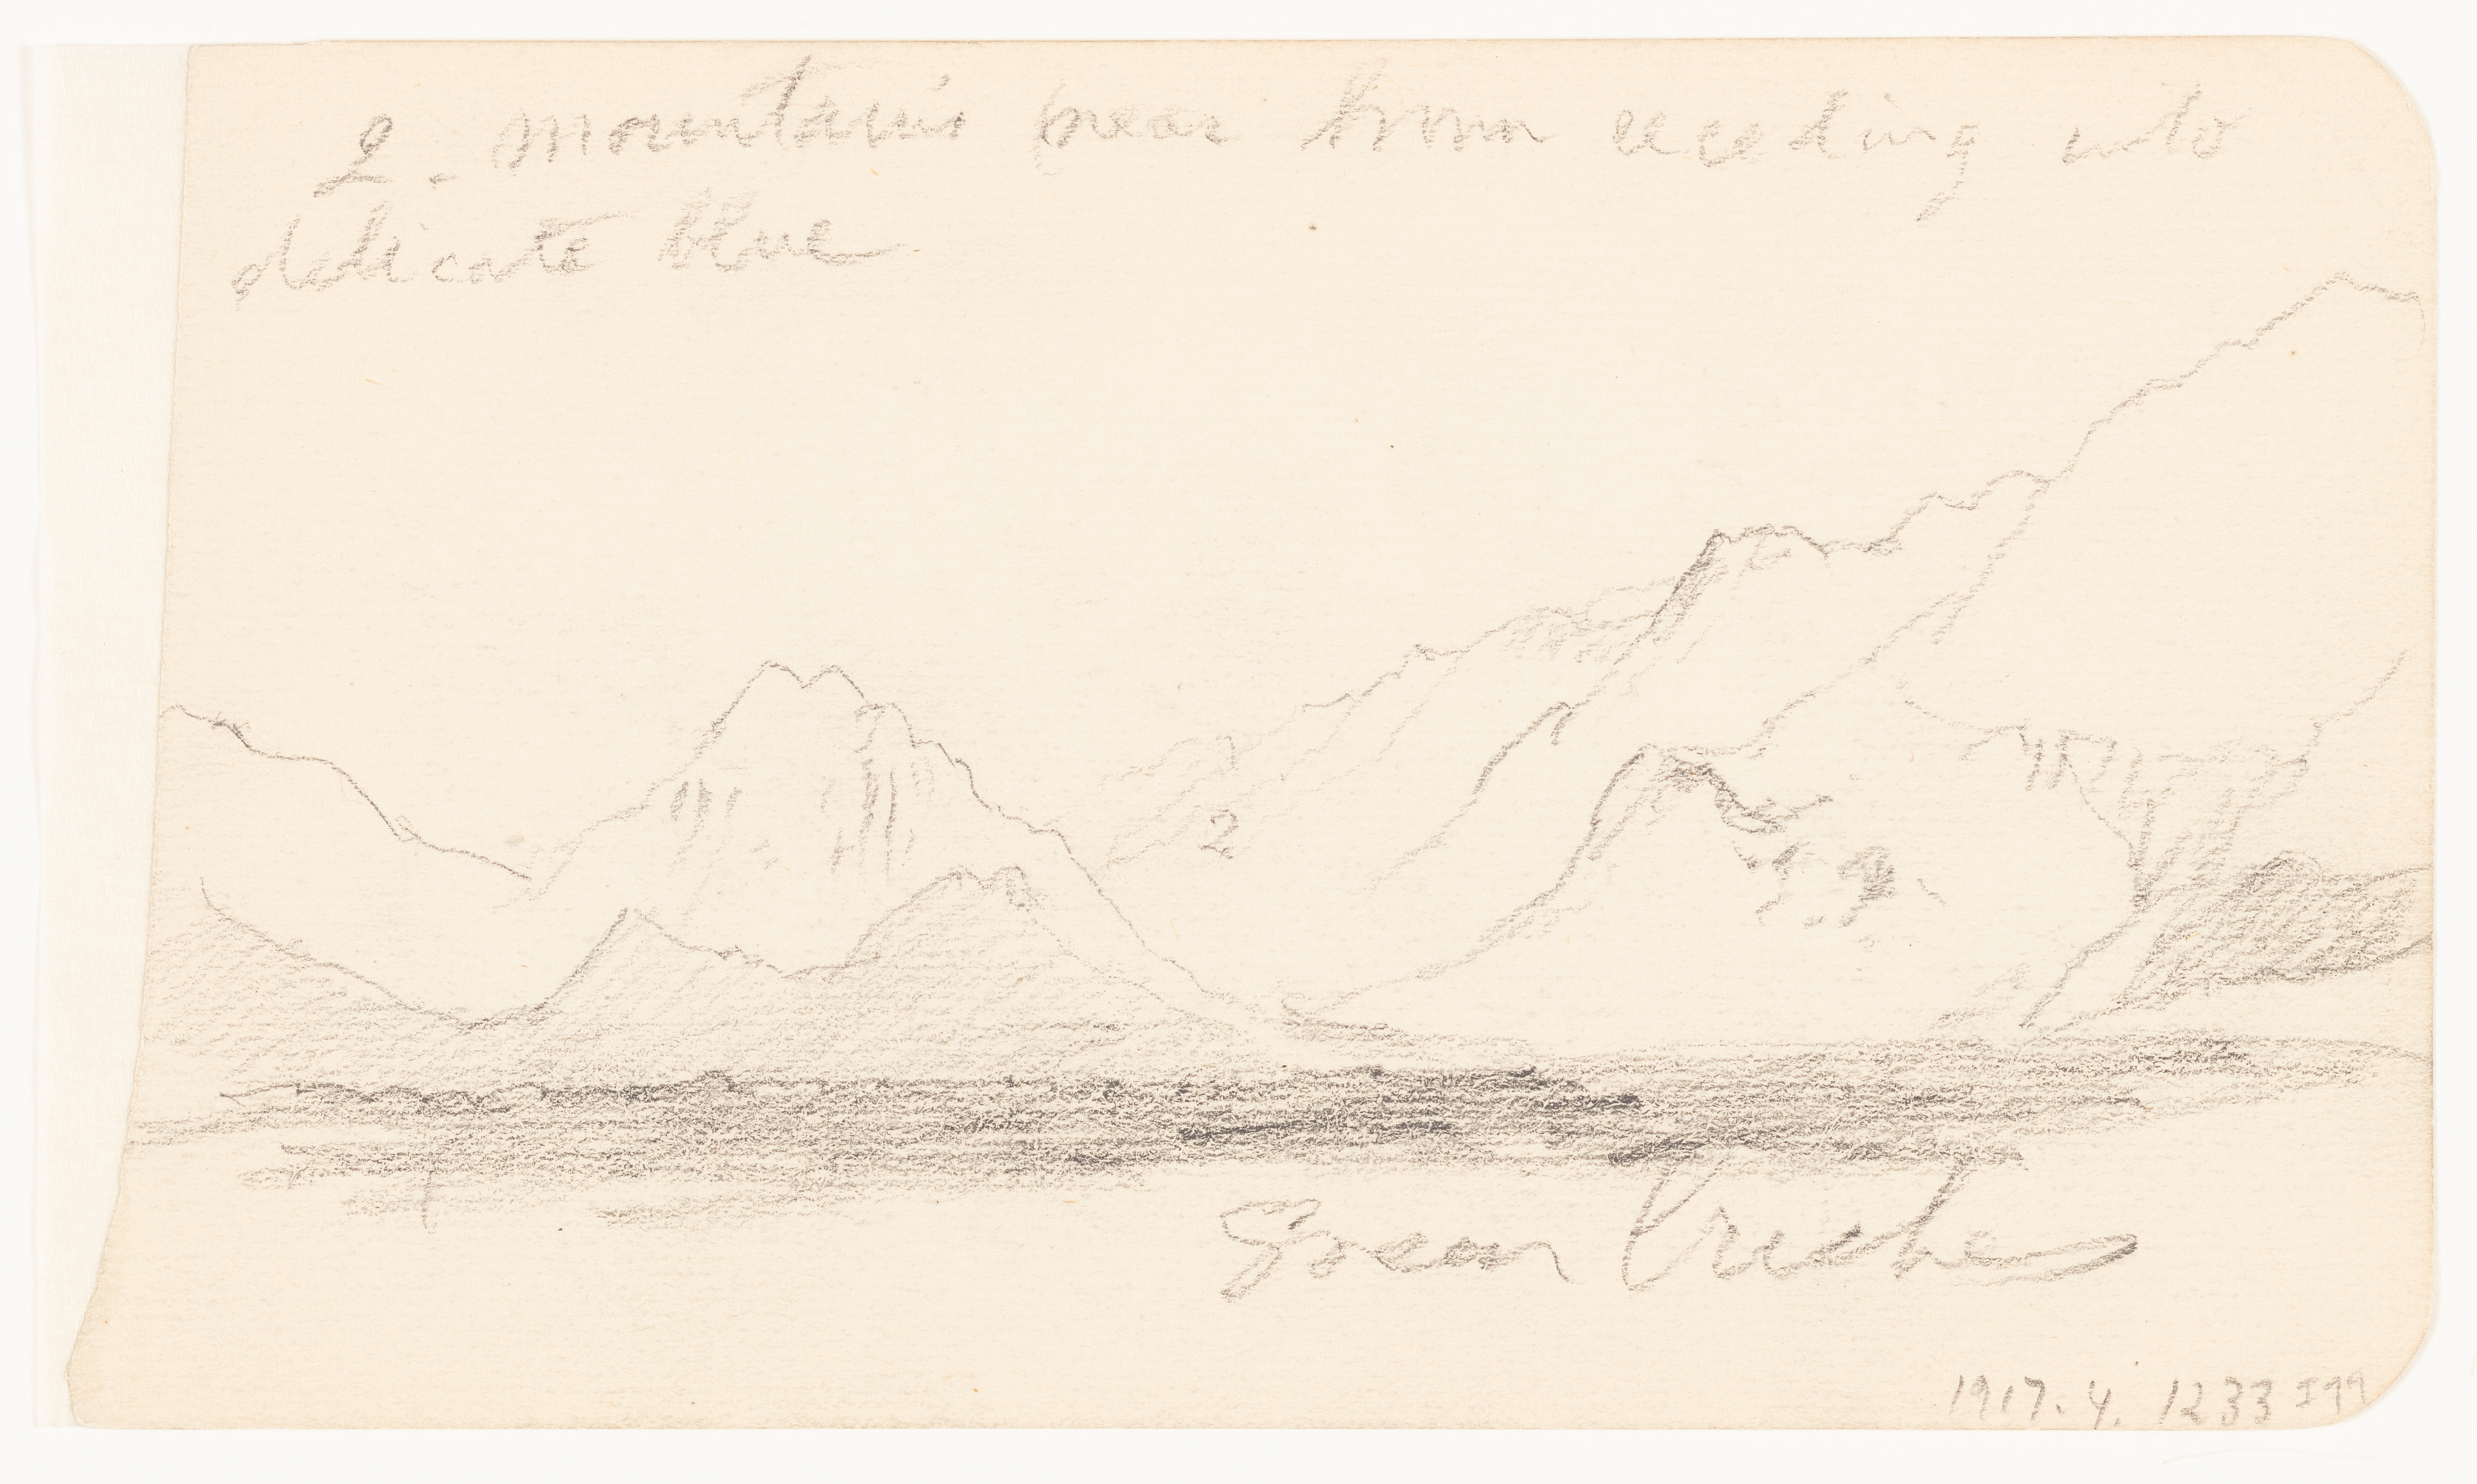 2. mountains near brown receding into
delicate blue
2
Green
1917.4.1233